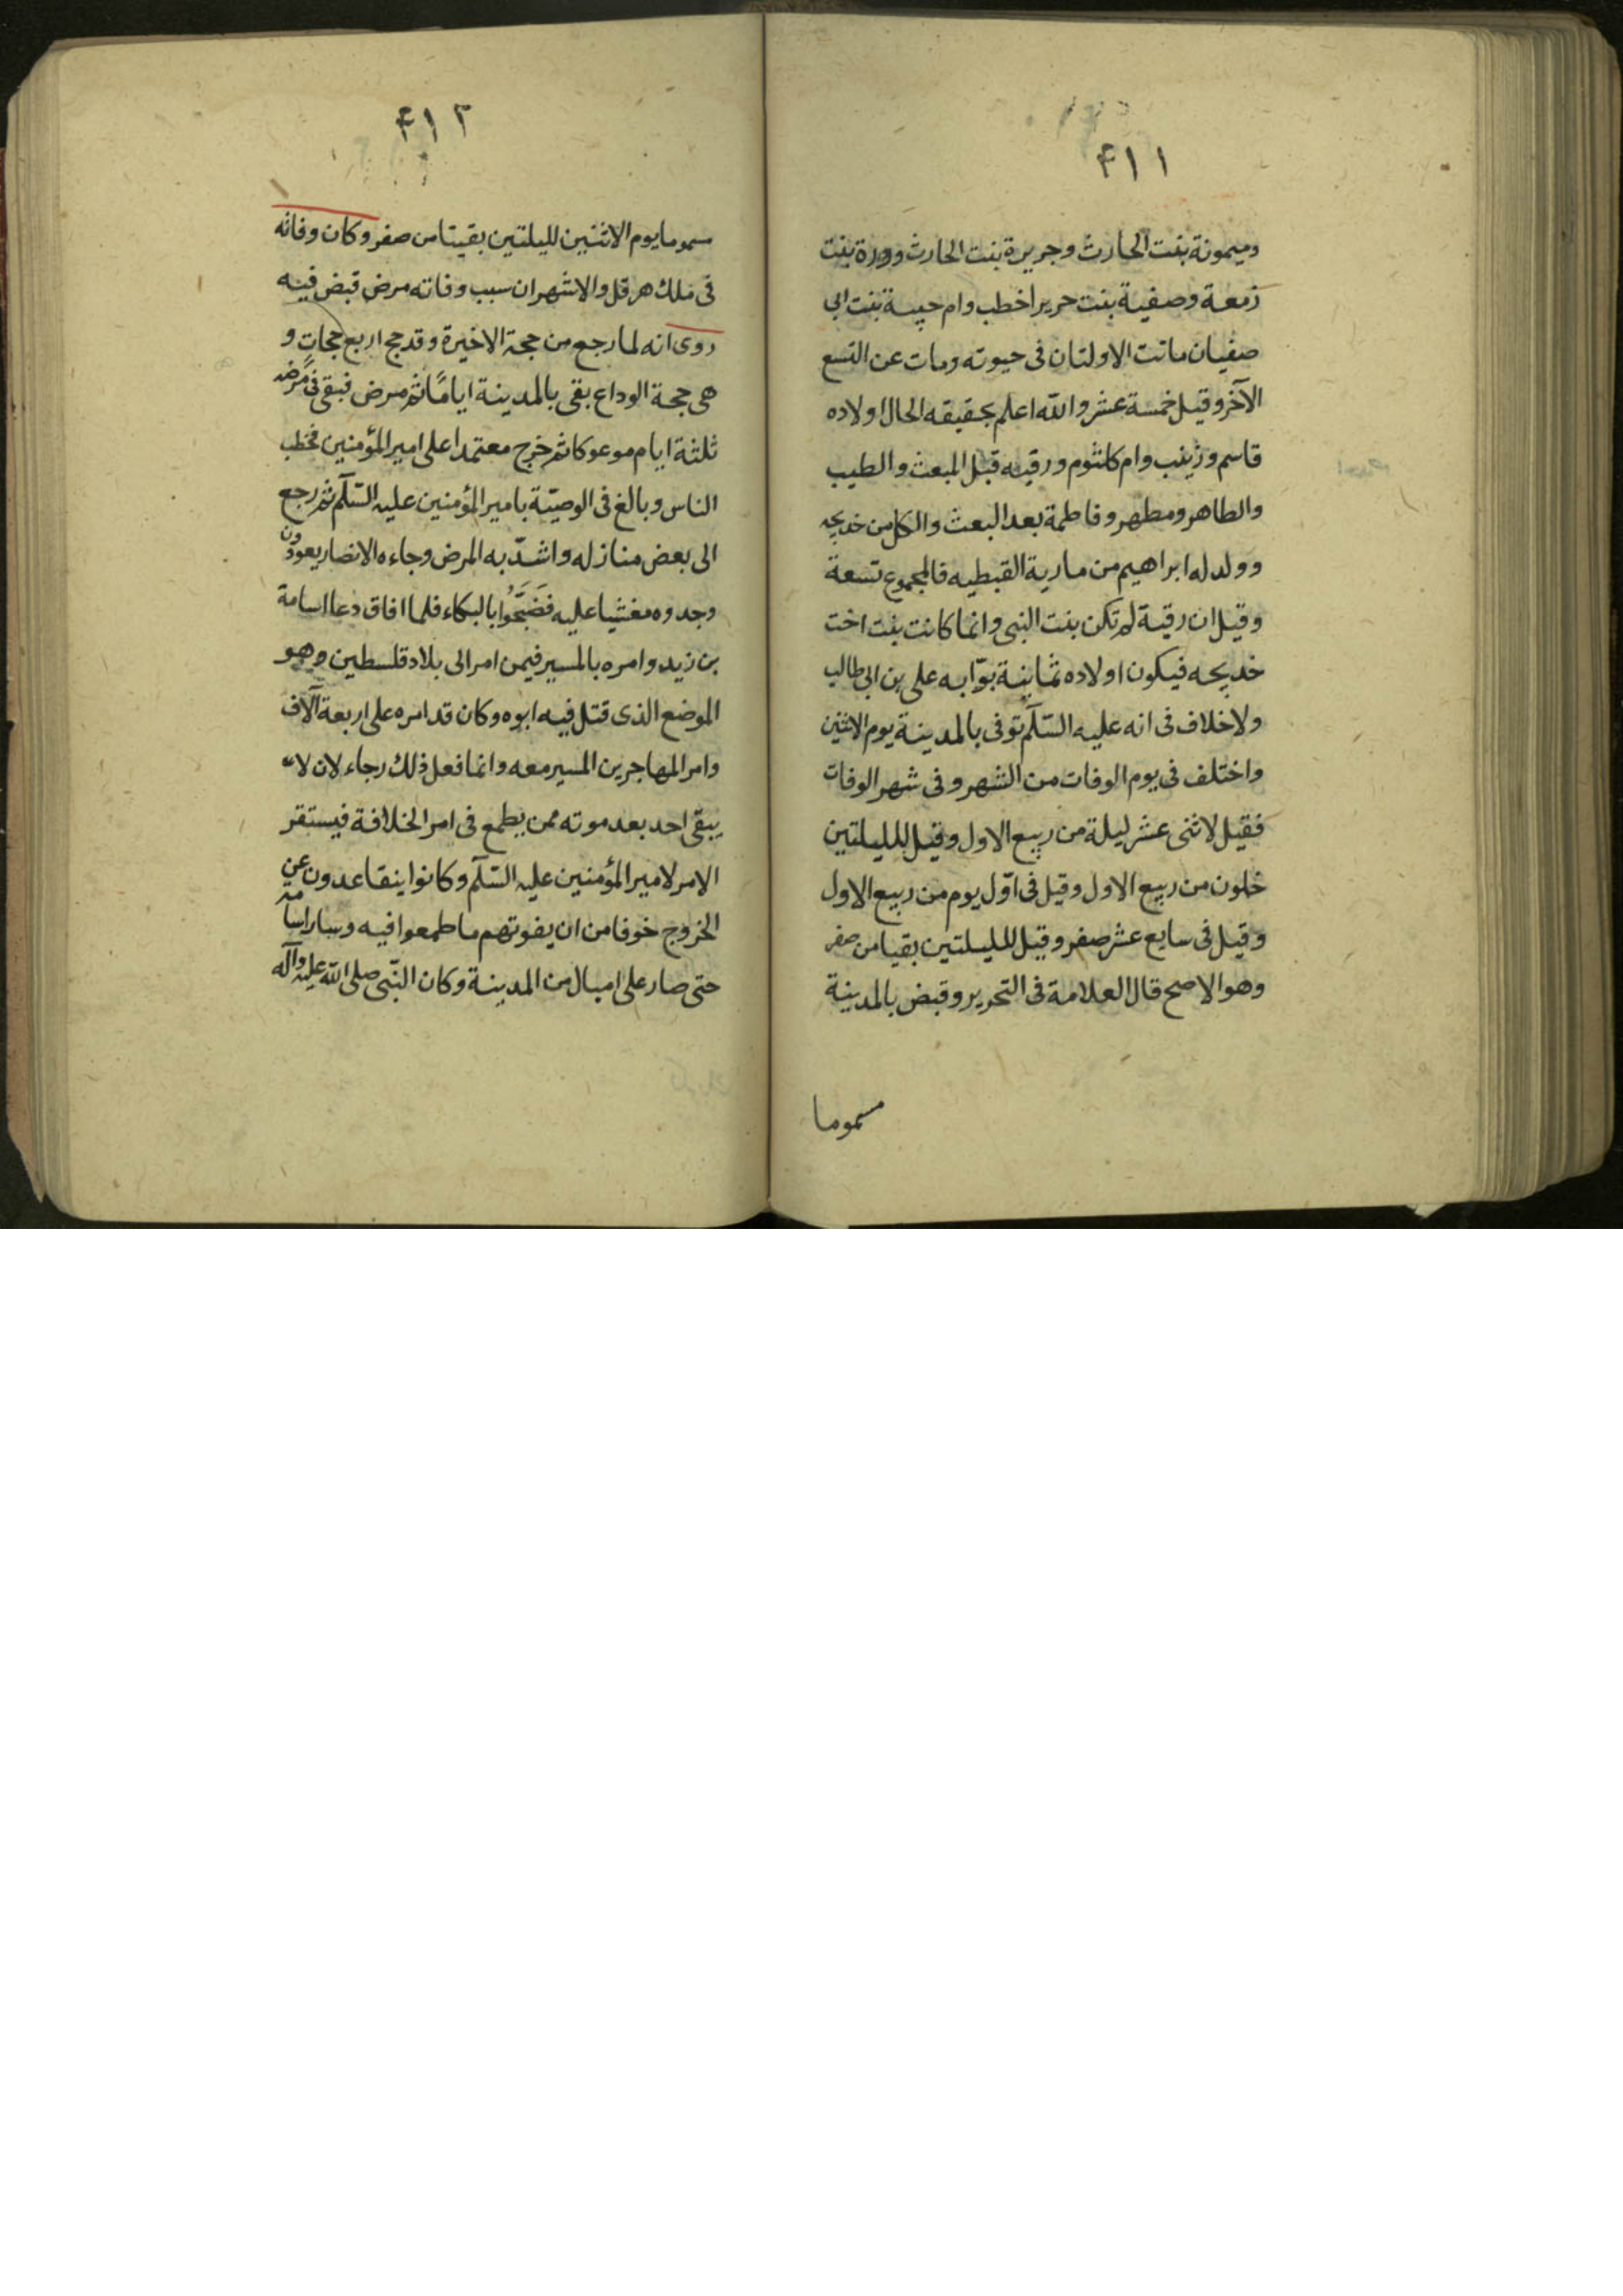 ۴۱۱
وميمونة بنت الحارث وجريرة بنت الحارث وورة بنت
زمعة وصفية بنت حريراخطب وام حبيبة بنت ابى
صفيان ماتت الاولتان فى حيوته ومات عن التسع
الآخر وقيل خمسة عشر والله اعلم بحقيقه الحال اولاده
قاسم وزينب وام كلثوم ورقيه قبل المبعث والطيب
والطاهر ومطهر وفاطمة بعد البعث والكل من خديجه
وولد له ابراهيم من مارية القبطيه فالمجموع تسعة
وقيل ان رقية لم تكن بنت النبى وانما كانت بنت اخت
خديجه فيكون اولاده ثمانية بوّابه على بن ابى طالب
ولا خلاف فى انه عليه السّلم توفى بالمدينة يوم الاثنين
واختلف فى يوم الوفات من الشهر وفى شهر الوفات
فقيل لاثنى عشر ليلة من ربيع الاول وقيل لليلتين
خلون من ربيع الاول وقيل فى اوّل يوم من ربيع الاول
وقيل فى سابع عشر صفر وقيل لليلتين بقيا من صفر
وهو الاصح قال العلامة فى التحرير وقبض بالمدينة
مسموما
۴۱۲
مسموما يوم الاثنين لليلتين بقيتا من صفر وكان وفاته
فى ملك هرقل والاشهر ان سبب وفاته مرض قبض فيه
روى انه لما رجع من حجة الاخيرة وقد حج اربع حجات و
هى حجة الوداع بقى بالمدينة ايامًا ثم مرض فبقى فى مرضه
ثلثة ايام موعوكا ثم خرج معتمدا على امير المؤمنين فخطب
الناس وبالغ فى الوصيّة بامير المؤمنين عليه السّلم ثم رجع
الى بعض منازله واشدّ به المرض وجاءه الانصار يعودون
وجدوه مغشيا عليه فَضَجَّوُا بالبكاء فلما افاق دعا اسامة
بن زيد وامره بالمسير فيمن امر الى بلاد فلسطين وهو
الموضع الذى قتل فيه ابوه وكان قد امره على اربعة آلاف
وامر المهاجرين المسير معه وانما فعل ذلك رجاء لان لا
يبقى احد بعد موته ممن يطمع فى امر الخلافة فيستقر
الامر لامير المؤمنين عليه السّلم وكانوا يتقاعدون عن
الخروج خوفا من ان يفوتهم ما طمعوا فيه وسار اسامه
حتى صار على اميال من المدينة وكان النّبى صلى الله عليه وآله